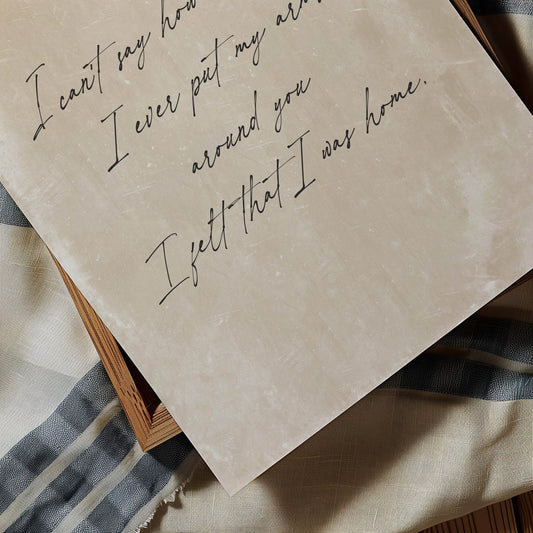 I can't say how
I ever put my
around you
I felt that I was home.